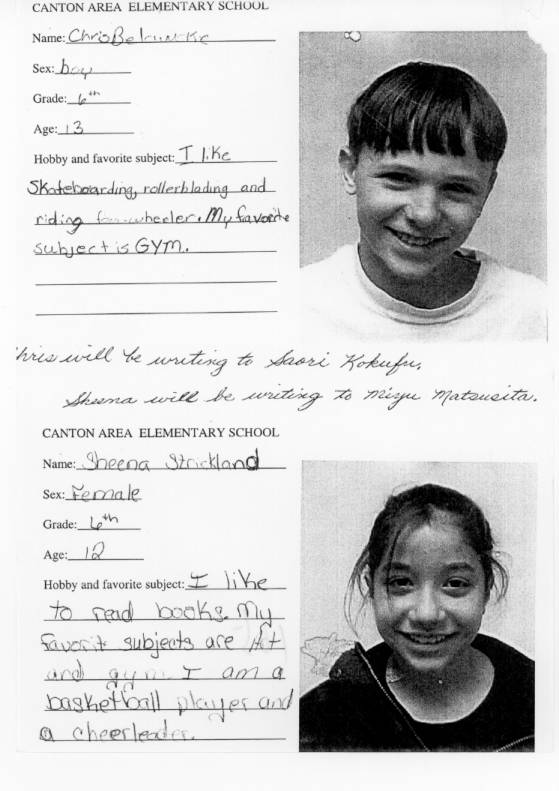 CANTON AREA ELEMENTARY SCHOOL
Name: Chris
Sex: boy
Grade: 6th
Age: 13
Hobby and favorite subject: I like
Skateboarding, rollerblading and
riding wheeler. My favorite
subject is GYM.
hris will be writing to Saori Kokufu.
Sheena will be writing to Miyu Matsusita.
CANTON AREA ELEMENTARY SCHOOL
Name: Sheena Strickland
Sex: Female
Grade: 6th
Age: 12
Hobby and favorite subject: I like
to read books. My
favorit subjects are Art
and gym. I am a
basketball player and
a cheerleader.